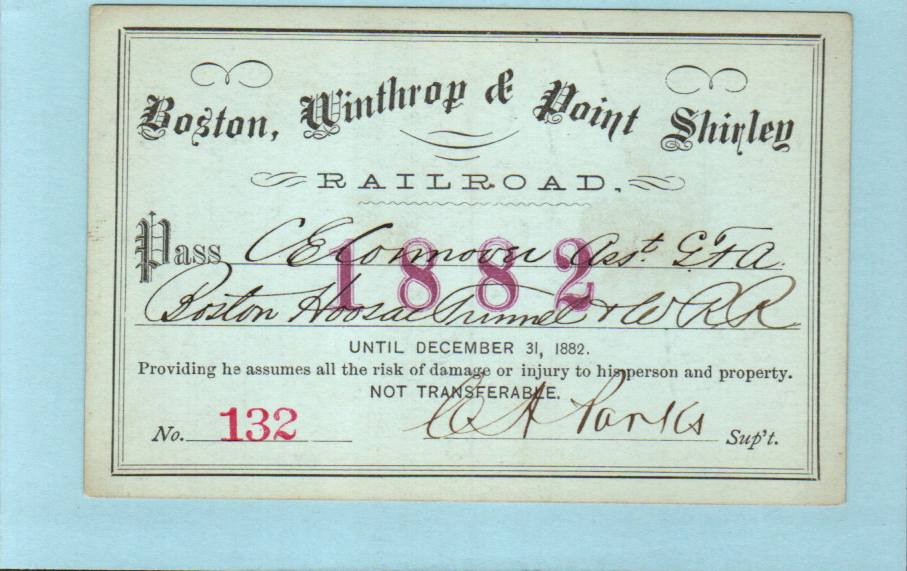 Boston, Winthrop & Point Shirley
RAILROAD.
Pass C E Asst G F A.
1882
Boston Hoosac Tunnel & W R R
UNTIL DECEMBER 31, 1882.
Providing he assumes all the risk of damage or injury to his person and property.
NOT TRANSFERABLE.
No. 132 Sup't.